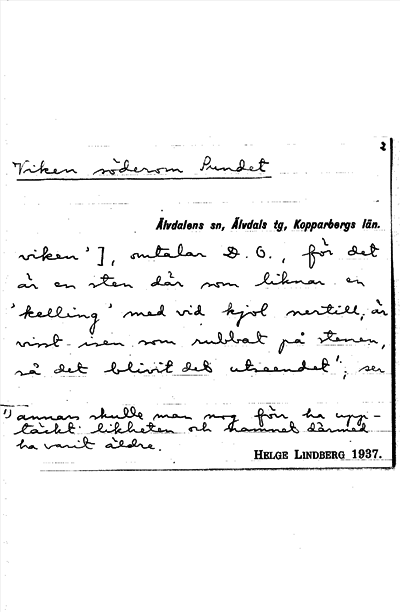 2
Viken söderom Sundet
Älvdalens sn, Älvdals tg, Kopparbergs län.
viken'], omtalar D. O., för det
är en sten där som liknar en
'kelling' med vid kjol nertill, är
visst isen som rubbat på stenen,
så det blivit det utseendet¹⁾; ser
¹⁾ annars skulle man nog förr ha upp-
täckt likheten och namnet därmed
ha varit äldre.
HELGE LINDBERG 1937.